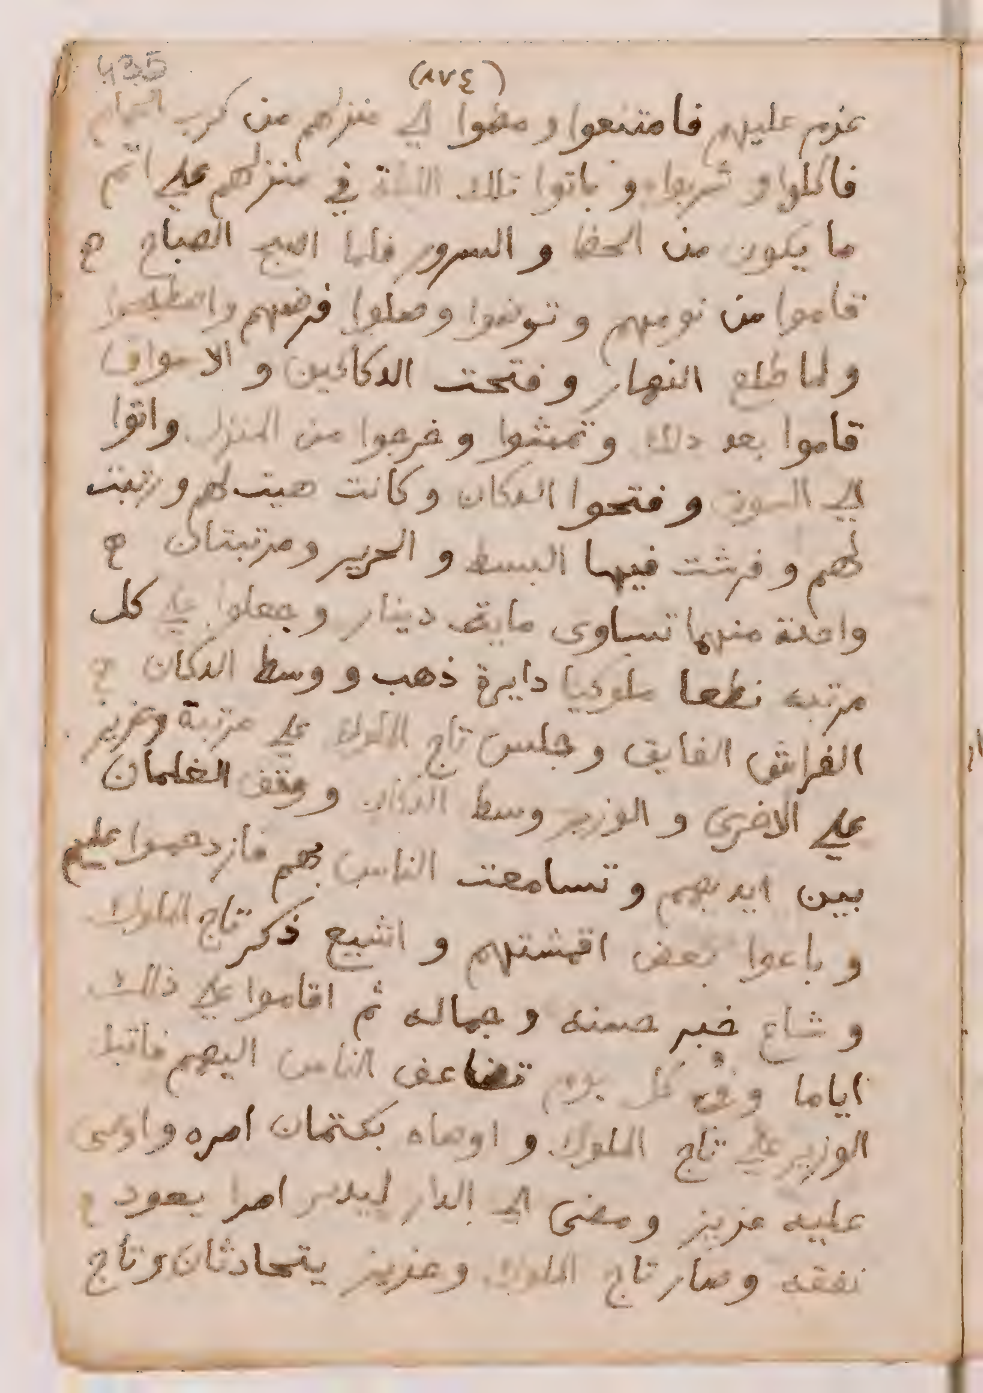 435
(٨٧٤)
عزم عليهم فامتنعوا و مضوا الي منزلهم من كرب الحمام
فاكلوا و شربوا و باتوا تلك الليلة في منزلهم علي اتم
ما يكون من الحظ و السرور فلما اصبح الصباح ه
قاموا من نومهم و توضوا و صلوا فرضهم واصطبحوا
و لما طلع النهار و فتحت الدكاكين و الاسواق
قاموا بعد ذلك و تمشوا و خرجوا من المنزل واتوا
الي السوق و فتحوا الدكان و كانت هيت لهم و رتبت
لهم و فرشت فيها البسط و الحرير و مرتبتان ه
واحدة منهما تساوى ماية دينار و جعلوا علي كل
مرتبه نطعا ملوكيا دايرة ذهب و وسط الدكان ه
الفراش الفايق و جلس تاج الملوك علي مرتبة وعزيز
علي الاخرى و الوزير وسط الدكان و وقف الغلمان
بين ايديهم و تسامعت الناس بهم فازدحموا عليهم
و باعوا بعض اقمشتهم و اشيع ذكر تاج الملوك
و شاع خبر حسنه و جماله ثم اقاموا علي ذلك
اياما و في كل يوم تضاعف الناس اليهم فاقبل
الوزير علي تاج الملوك و اوصاه بكتمان امره و اوصى
عليه عزيز و مضى الي الدار ليدبر امرا يعود ه
نفقه و صار تاج الملوك و عزيز يتحادثان و تاج